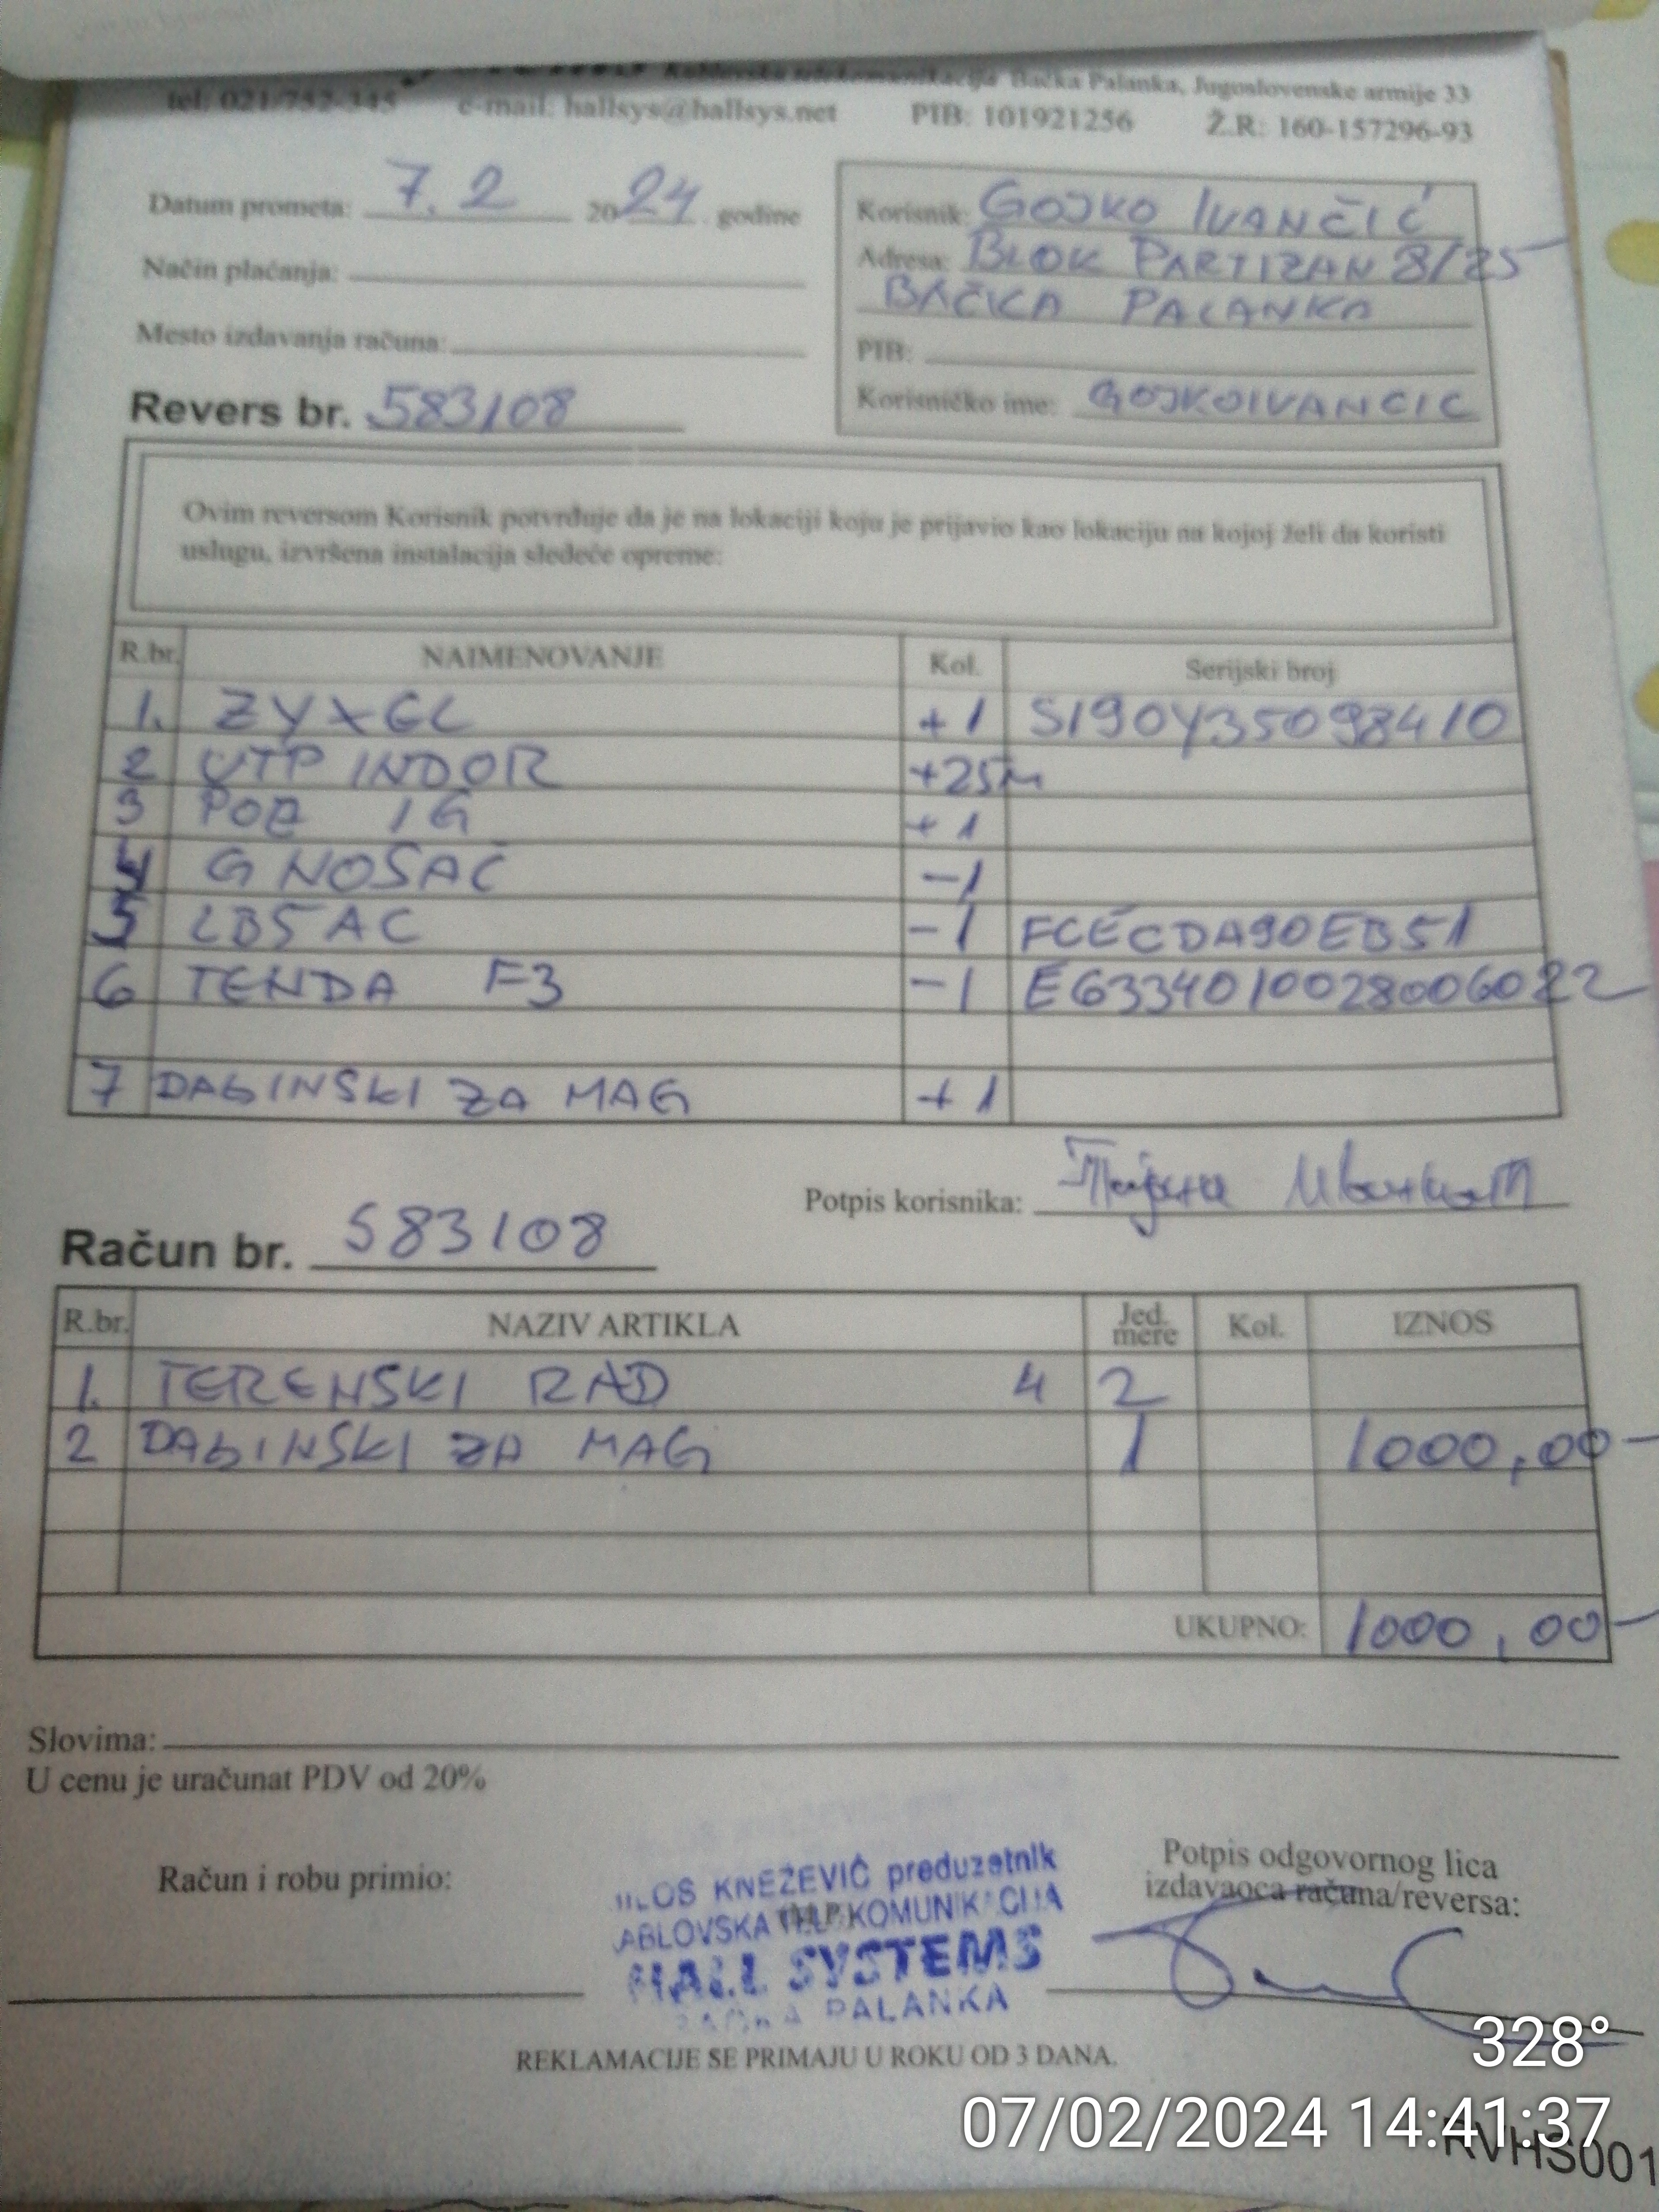 Kablovska telekomunikacija Bačka Palanka, Jugoslovenske armije 33
tel: 021/752-345 e-mail: hallsys@hallsys.net PIB: 101921256 Ž.R: 160-157296-93
Datum prometa: 7.2 2024 godine
Način plaćanja:
Mesto izdavanja računa:
Revers br. 583108
Korisnik: GOJKO IVANČIĆ
Adresa: BLOK PARTIZAN 8/25
BAČKA PALANKA
PIB:
Korisničko ime: GOJKOIVANCIC
Ovim reversom Korisnik potvrđuje da je na lokaciji koju je prijavio kao lokaciju na kojoj želi da koristi
uslugu, izvršena instalacija sledeće opreme:
R.br. NAIMENOVANJE Kol. Serijski broj
1. ZYXEL +1 S190Y35098410
2 UTP INDOR +25M
3 POE 1G +1
4 G NOSAČ -1
5 LB5AC -1 FCECDA90EB51
6 TENDA F3 -1 E6334010028006022
7 DAbINSKI ZA MAG +1
Potpis korisnika:
Račun br. 583108
R.br. NAZIV ARTIKLA Jed. mere Kol. IZNOS
1. TERENSKI RAD 4 2
2 DAbINSKI ZA MAG 1 1000,00
UKUPNO: 1000,00
Slovima:
U cenu je uračunat PDV od 20%
Račun i robu primio:
KNEŽEVIĆ preduzetnik
HALL SYSTEMS
PALANKA
Potpis odgovornog lica
izdavaoca računa/reversa:
REKLAMACIJE SE PRIMAJU U ROKU OD 3 DANA.
328°
07/02/2024 14:41:37
RVHS001